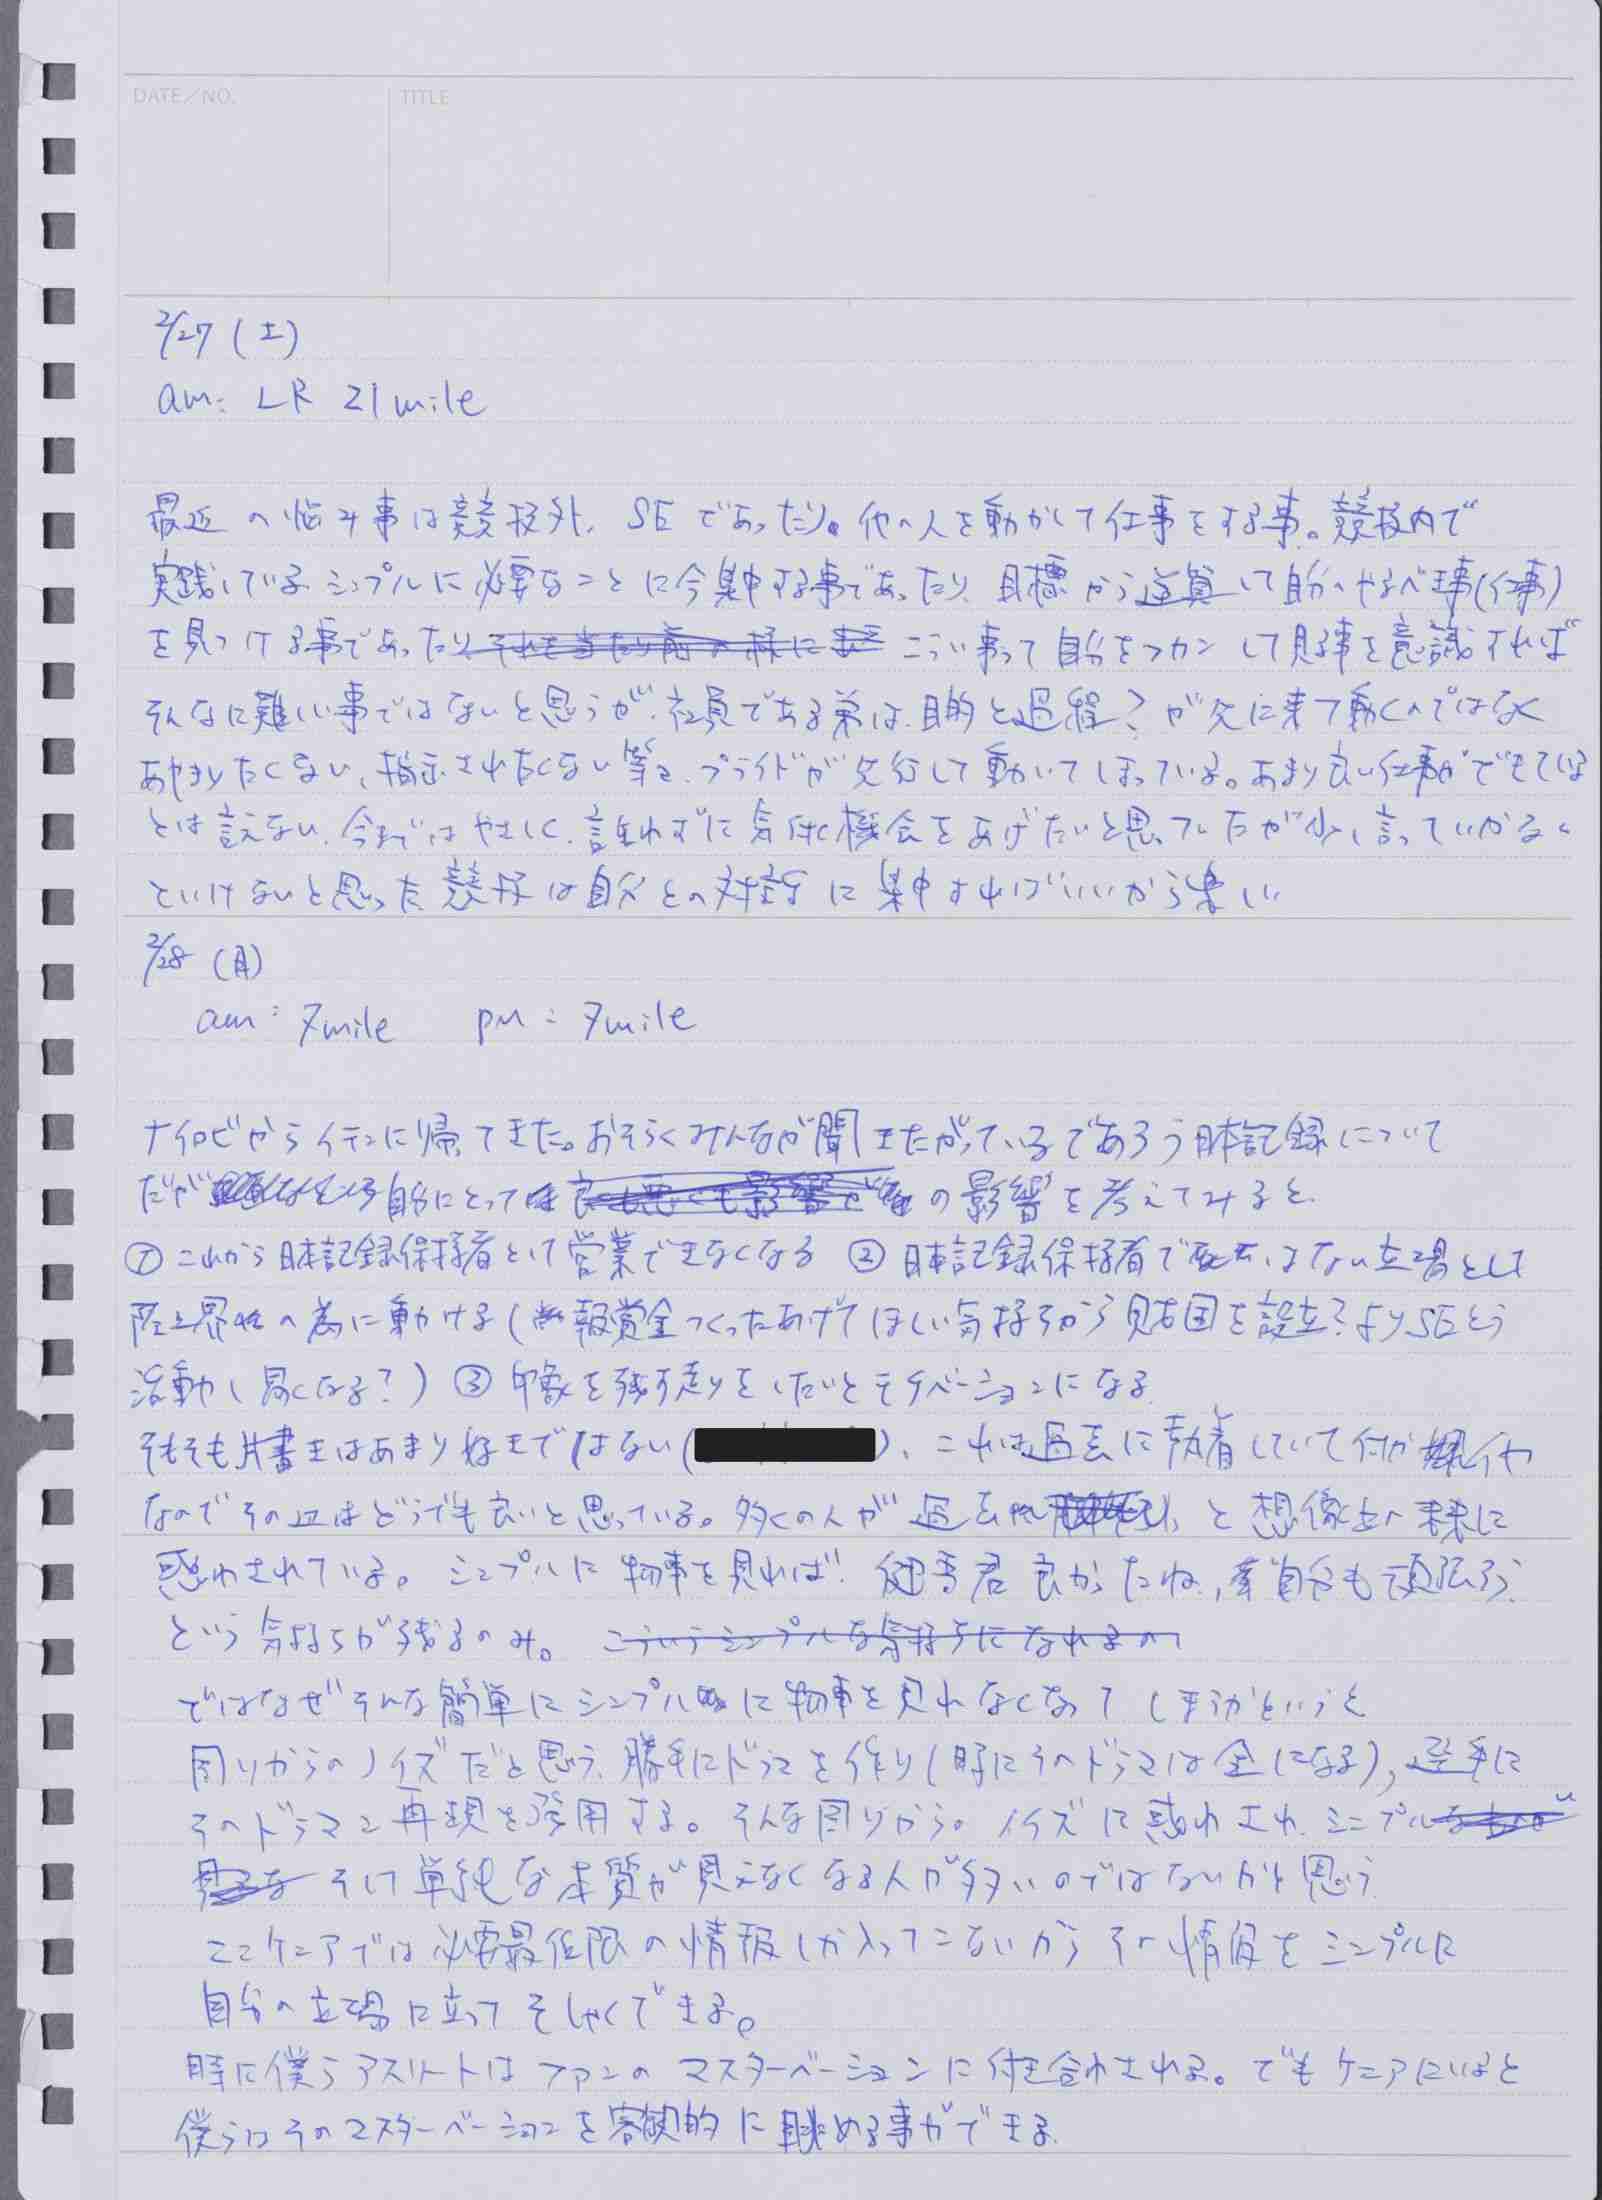 DATE/NO.
TITLE
2/27 (土)
am: LR 21mile
最近の悩み事は競技外、SEであったり。他の人を動かして仕事をする事。競技内で
実践しているシンプルに必要なことに今集中する事であったり、目標から逆算して自分のやるべき事(仕事)
を見つける事であったり、それを当たり前の様に こうい事って自分をフカンして見る事を意識すれば
そんなに難しい事ではないと思うが、社員である弟は、目的と過程?が先に来て動くのではなく
あやまりたくない、指示されたくない等と、プライドが先行して動いてしまっている。あまり良い仕事ができている
とは言えない。今まではやさしく、言わずに気付く機会をあげたいと思っていたが少し言っていかない
といけないと思った。競技は自分との対話に集中すればいいから楽しい
2/28 (月)
am: 7mile pm: 7mile
ナイロビからイテンに帰ってきた。おそらくみんなが聞きたがっているであろう日本記録について
だが 自分にとって 良くも悪くも影響が の影響を考えてみると、
① これから日本記録保持者として営業できなくなる ② 日本記録保持者ではない立場として
陸上界の為に動ける(報賞金つくったあげてほしい気持ちから財団を設立?よりSEとう
活動し易くなる?) ③ 印象を残す走りをしたいとモチベーションになる。
そもそも片書きはあまり好きではない( )、これは過去に執着していて何かイヤ
なのでその辺はどうでも良いと思っている。多くの人が過去 と想像上の未来に
惑わされている。シンプルに物事を見れば、健吾君良かったね、自分も頑張ろう
という気持ちが残るのみ。こういうシンプルな気持ちになれるの
ではなぜそんな簡単にシンプルに物事を見れなくなってしまうかというと
周りからのノイズだと思う。勝手にドラマを作り(時にそのドラマは金になる)、選手に
そのドラマの再現を強用する。そんな周りから。ノイズに惑わされ、シンプル
そして単純な本質が見えなくなる人が多いのではないかと思う
ここケニアでは必要最低限の情報しか入ってこないからその情報をシンプルに
自分の立場に立ってそしゃくできる。
時に僕らアスリートはファンのマスターベーションに付き合わされる。でもケニアにいると
僕らはそのマスターベーションを客観的に眺める事ができる。